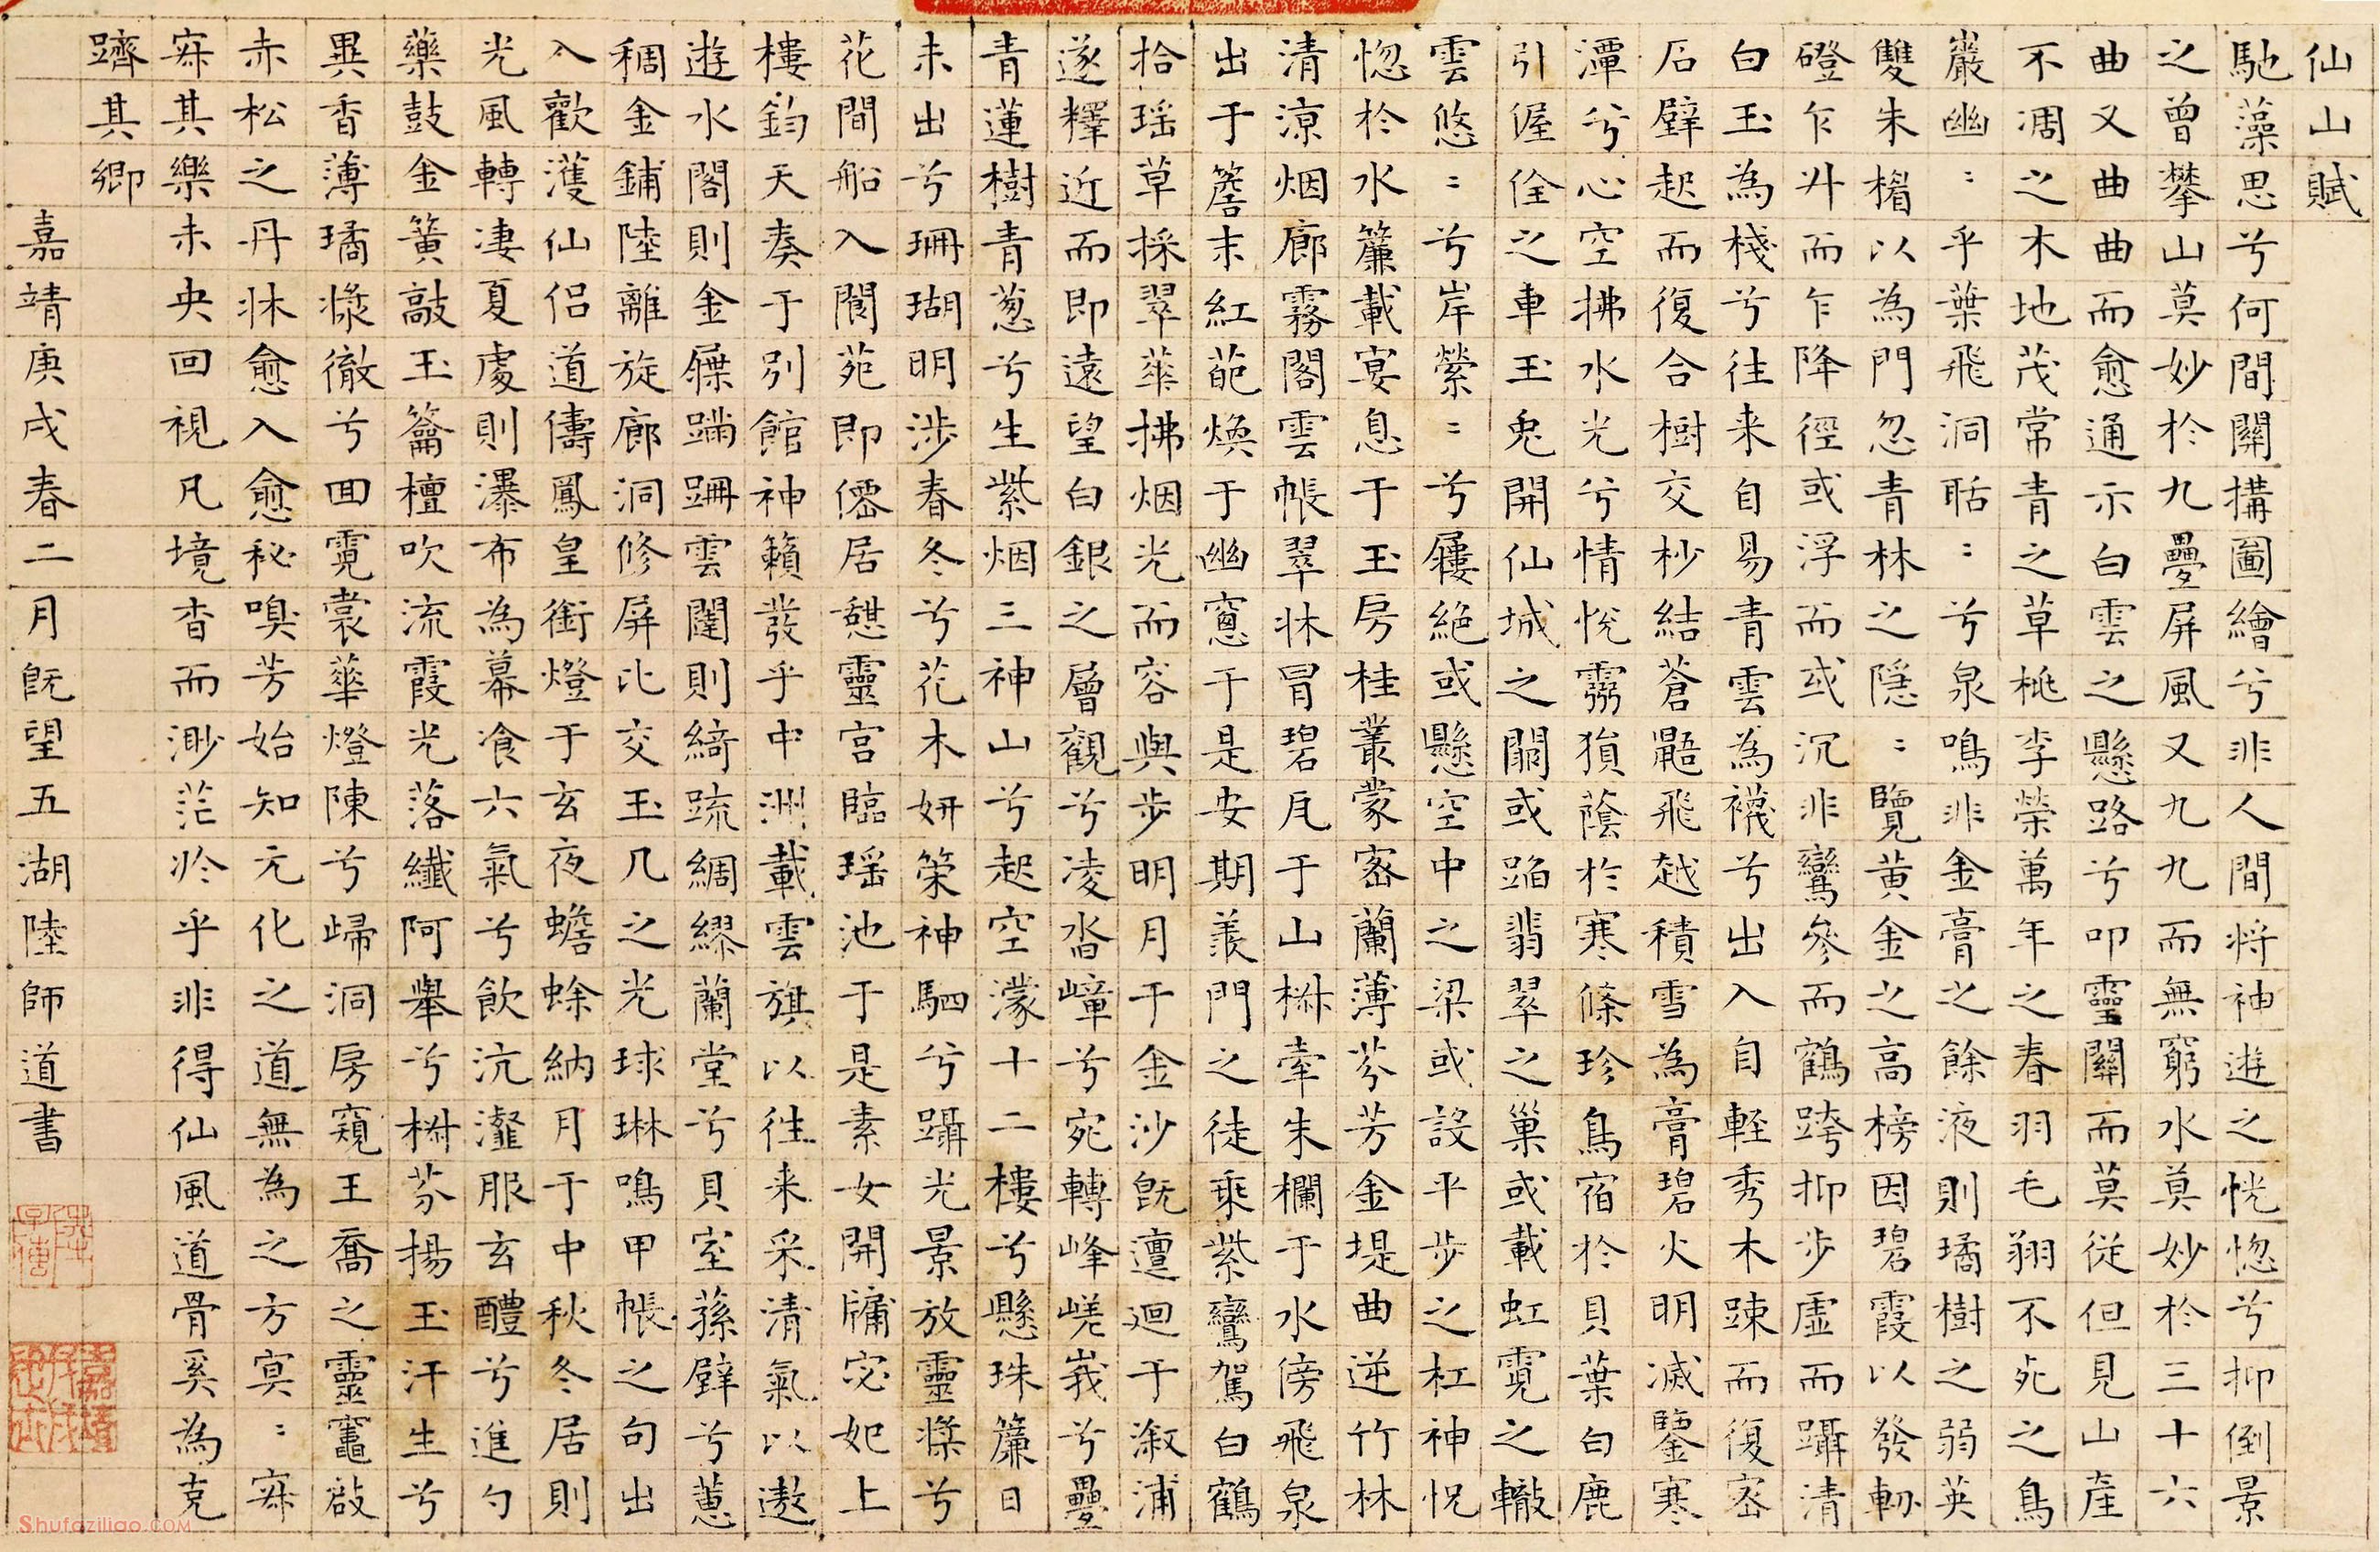 仙山賦
馳藻思兮何間關構圖繪兮非人間将神遊之恍惚兮抑倒景
之曾攀山莫妙於九疊屏風又九九而無窮水莫妙於三十六
曲又曲曲而愈通示白雲之懸路兮叩靈關而莫從但見山產
不凋之木地茂常青之草桃李榮萬年之春羽毛翔不死之鳥
巖幽〻乎葉飛洞聒〻兮泉鳴非金膏之餘液則璚樹之弱英
雙朱楯以為門忽青林之隱〻覽黄金之高榜因碧霞以發軔
磴乍升而乍降徑或浮而或沉非鸞參而鶴跨抑步虛而躡清
白玉為棧兮往来自易青雲為襪兮出入自輕秀木踈而復密
石壁起而復合樹交杪結蒼鼯飛越積雪為膏碧火明滅鑿寒
潭兮心空拂水光兮情悅蔭於寒條珍鳥宿於貝葉白鹿
引偓佺之車玉兔開仙城之關或蹈翡翠之巢或載虹霓之轍
雲悠〻兮岸縈〻兮屨絕或懸空中之梁或設平步之杠神怳
惚於水簾載宴息于玉房桂叢蒙密蘭薄芬芳金堤曲逆竹林
清涼烟廊霧閣雲帳翠牀冒碧瓦于山椒牽朱欄于水傍飛泉
出于簷末紅葩煥于幽窻于是安期羨門之徒乘紫鸞駕白鶴
拾瑶草採翠華拂烟光而容與步明月于金沙既邅迴于溆浦
遂釋近而即遠望白銀之層觀兮凌沓嶂兮宛轉峰嵯峩兮疊
青蓮樹青葱兮生紫烟三神山兮起空濛十二樓兮懸珠簾日
未出兮珊瑚明涉春冬兮花木妍策神駟兮躡光景放靈槳兮
花間船入閬苑即僊居憩靈宮臨瑶池于是素女開牖宓妃上
樓鈞天奏于別館神籟發乎中洲載雲旗以往来采清氣以遨
遊水閣則金屧蹣跚雲闥則綺疏綢繆蘭堂兮貝室蓀壁兮蕙
稠金鋪陸離旋廊洞修屏比交玉几之光球琳鳴甲帳之句出
入歡濩仙侣道儔鳳皇銜燈于玄夜蟾蜍納月于中秋冬居則
光風轉凄夏處則瀑布為幕飡六氣兮飲沆瀣服玄醴兮進勺
藥鼓金簧敲玉籥檀吹流霞光落纖阿舉兮椒芬揚玉汗生兮
異香薄璚漿徹兮回霓裳華燈陳兮歸洞房窺王喬之靈竈啟
赤松之丹牀愈入愈秘嗅芳始知元化之道無為之方冥〻寂
寂其樂未央回視凡境杳而渺茫於乎非得仙風道骨奚為克
躋其鄉
嘉靖庚戌春二月既望五湖陸師道書
shufaziliao.COM